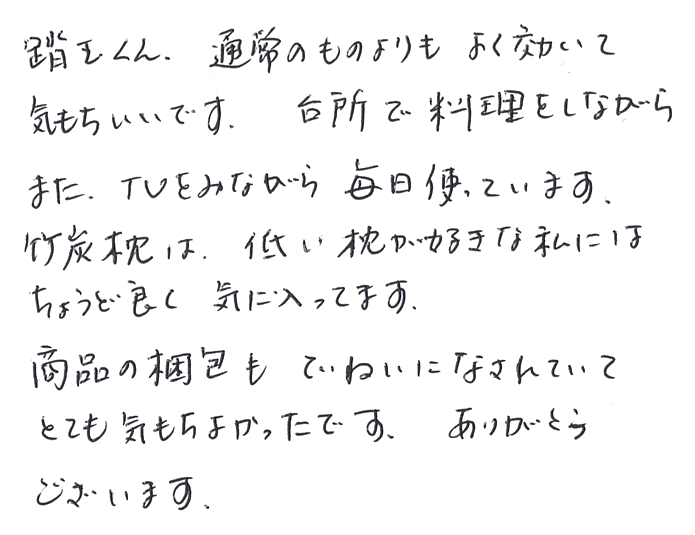 踏王くん、通常のものよりも よく効いて
気もちいいです。 台所で料理をしながら
また、TVをみながら 毎日使っています。
竹炭枕は、低い枕が好きな私には
ちょうど良く 気に入ってます。
商品の梱包も ていねいになされていて
とても気もちよかったです。 ありがとう
ございます。